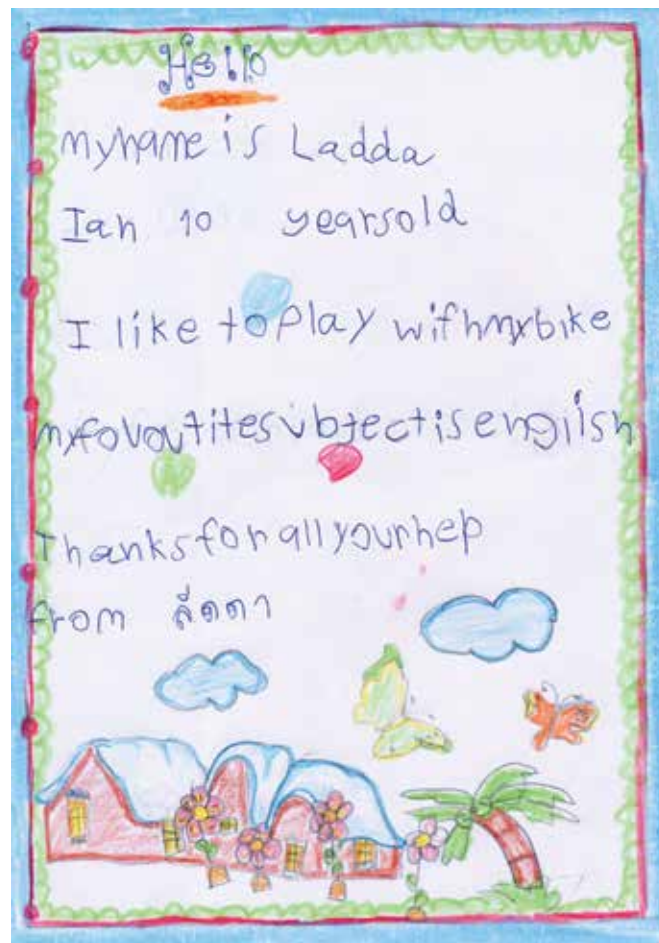 Hello
my name is Ladda
I an 10 years old
I like to play wifh my bike
my fovoutite subject is english
Thanks for all your hep
from ลัดดา